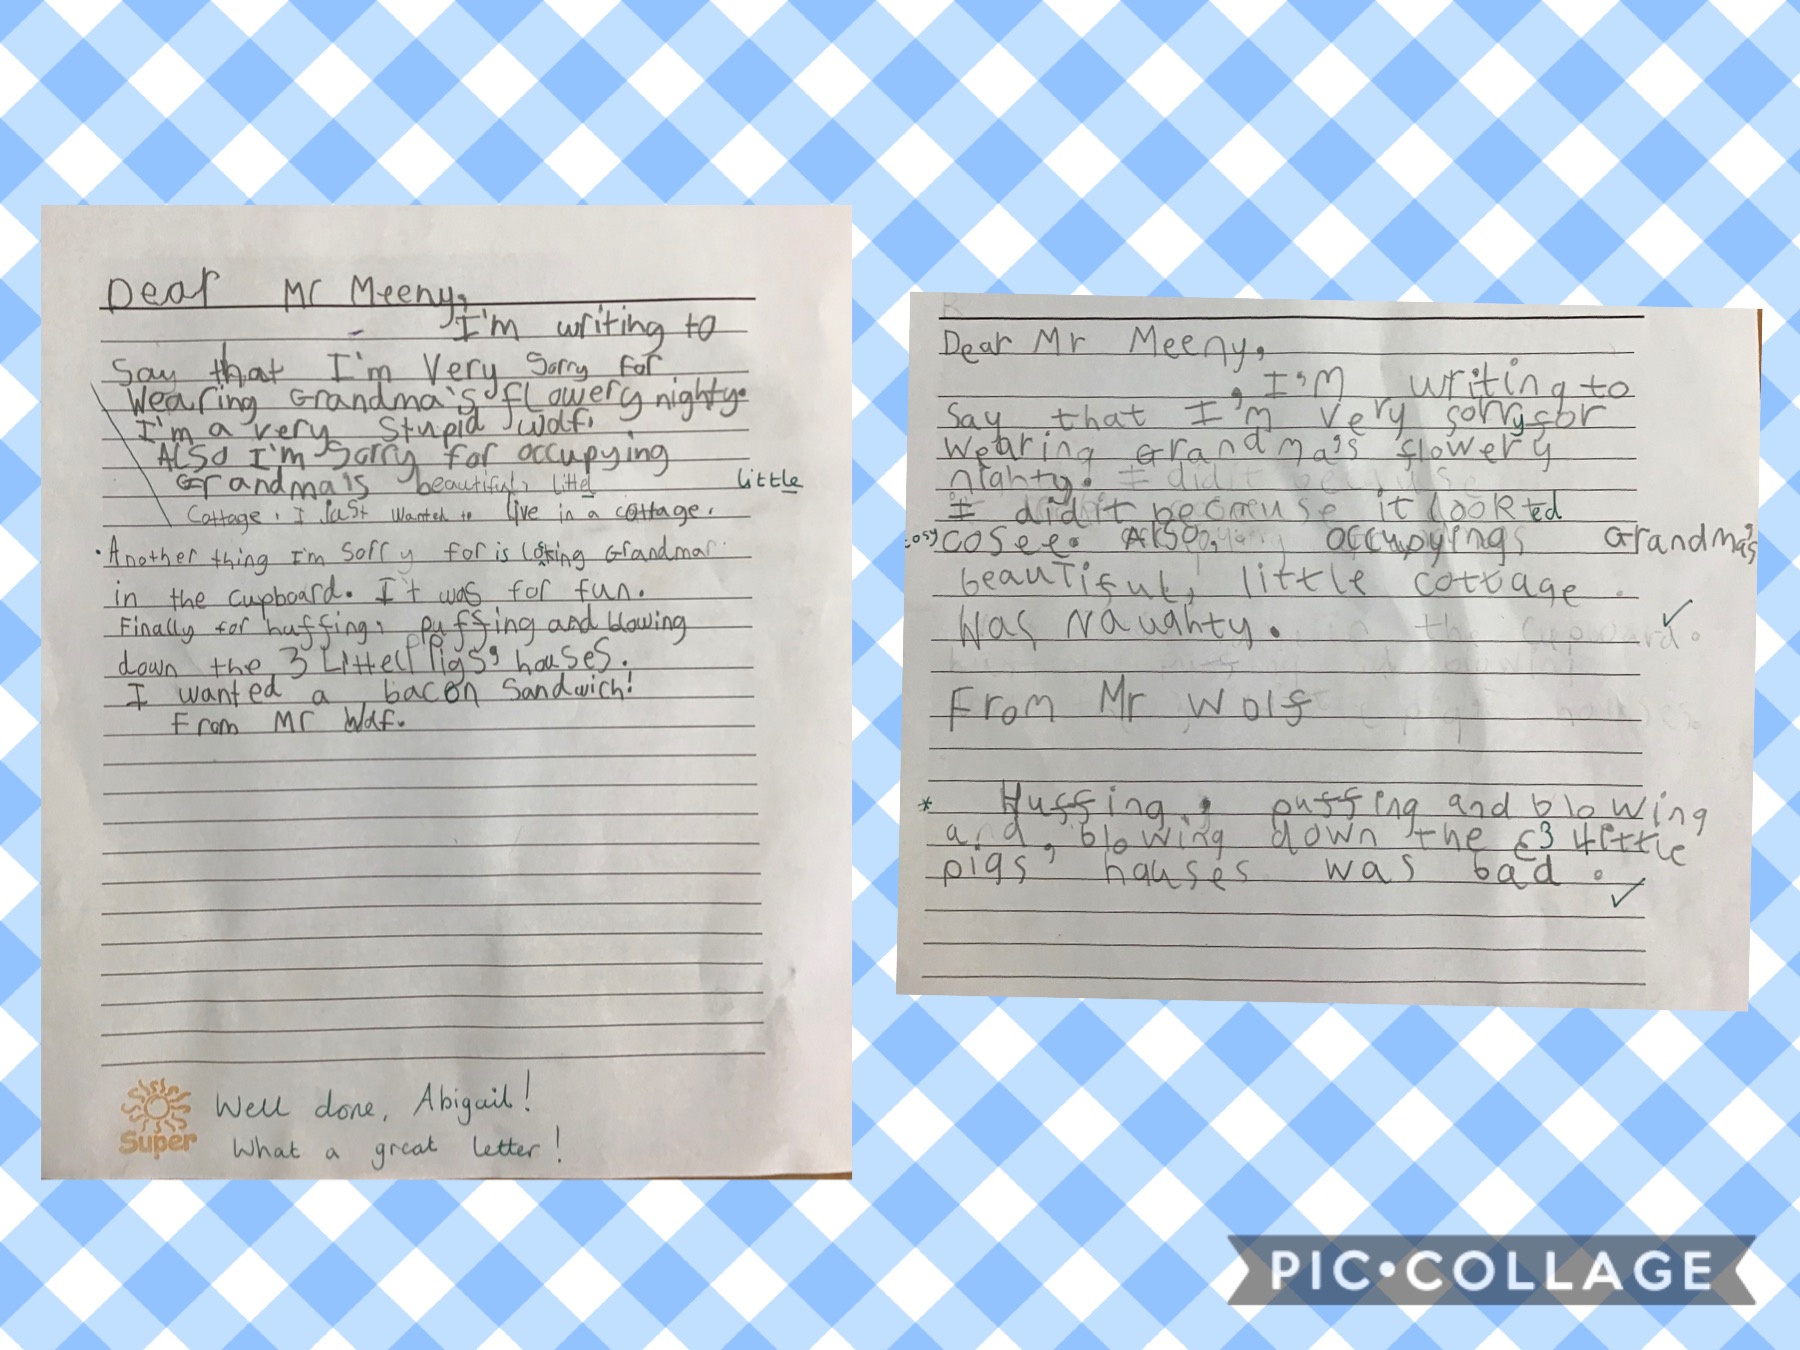 Dear Mr Meeny,
I'm writing to
Say that I'm Very Sorry for
Wearing Grandma's flowery nighty.
I'm a very Stupid Wolf.
Also I'm Sorry for occupying
Grandma's beautiful, littel little
Cottage. I Just wanted to live in a cottage.
Another thing I'm Sorry for is locking Grandma
in the cupboard. It was for fun.
Finally for huffing, puffing and blowing
down the 3 Littell Pigs' houses.
I wanted a bacon Sandwich!
From Mr Wolf.
Super
Well done, Abigail!
What a great letter!
Dear Mr Meeny,
, I'm writing to
Say that I'm very sorry for
Wearing Grandma's flowery
nighty.
I did it because it looked
cosy cosee. Also, occupying Grandma's
beautiful, little cottage
Was Naughty.
From Mr Wolf
* Huffing, puffing and blowing
and, blowing down the 3 little
pigs' houses was bad.
PIC•COLLAGE